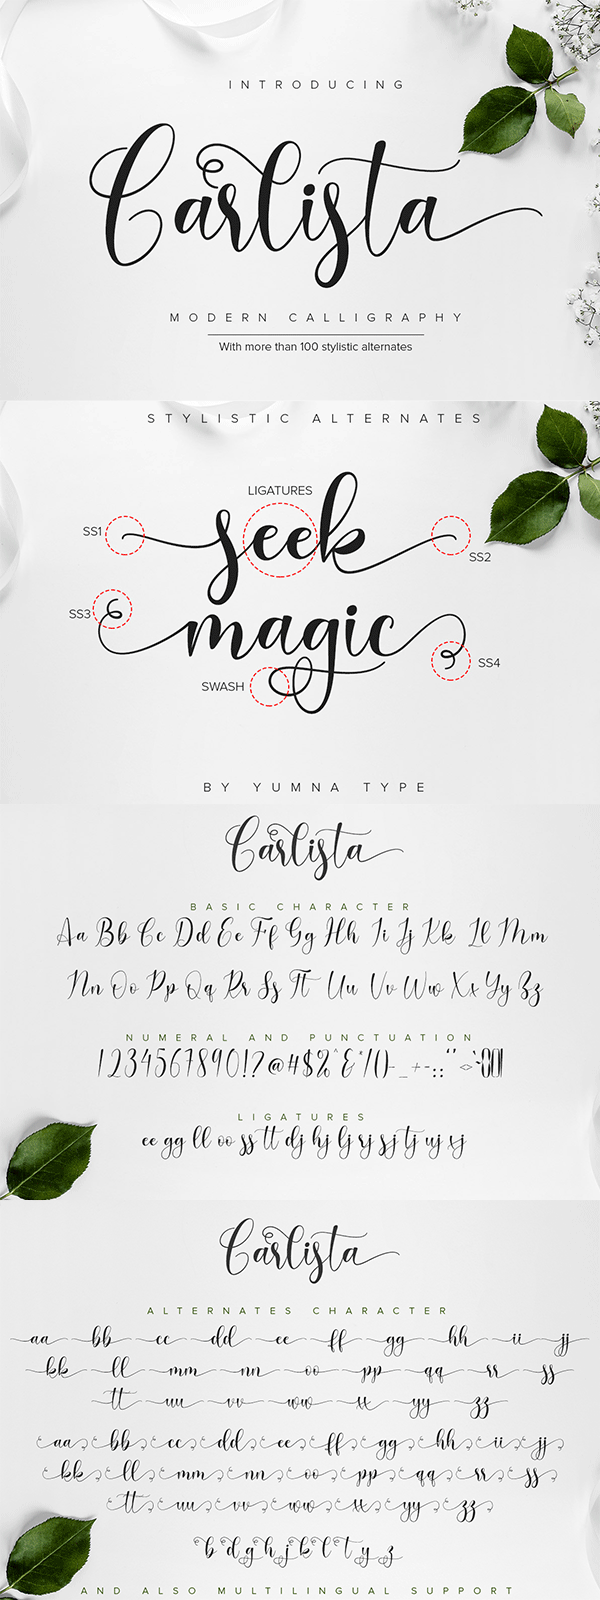 INTRODUCING
Carlista
MODERN CALLIGRAPHY
With more than 100 stylistic alternates
STYLISTIC ALTERNATES
LIGATURES
SS1
seek
SS2
SS3
magic
SS4
SWASH
BY YUMNA TYPE
Carlista
BASIC CHARACTER
Aa Bb Cc Dd Ee Ff Gg Hh Ii Jj Kk Ll Mm
Nn Oo Pp Qq Rr Ss Tt Uu Vv Ww Xx Yy Zz
NUMERAL AND PUNCTUATION
1234567890!?@#$%^&*/()-_+-:;"<>'{}[]
LIGATURES
ee gg ll oo ss tt dj hj lj rj sj tj uj xj
Carlista
ALTERNATES CHARACTER
aa bb cc dd ee ff gg hh ii jj
kk ll mm nn oo pp qq rr ss
tt uu vv ww xx yy zz
aa bb cc dd ee ff gg hh ii jj
kk ll mm nn oo pp qq rr ss
tt uu vv ww xx yy zz
b d g h j k l t y z
AND ALSO MULTILINGUAL SUPPORT